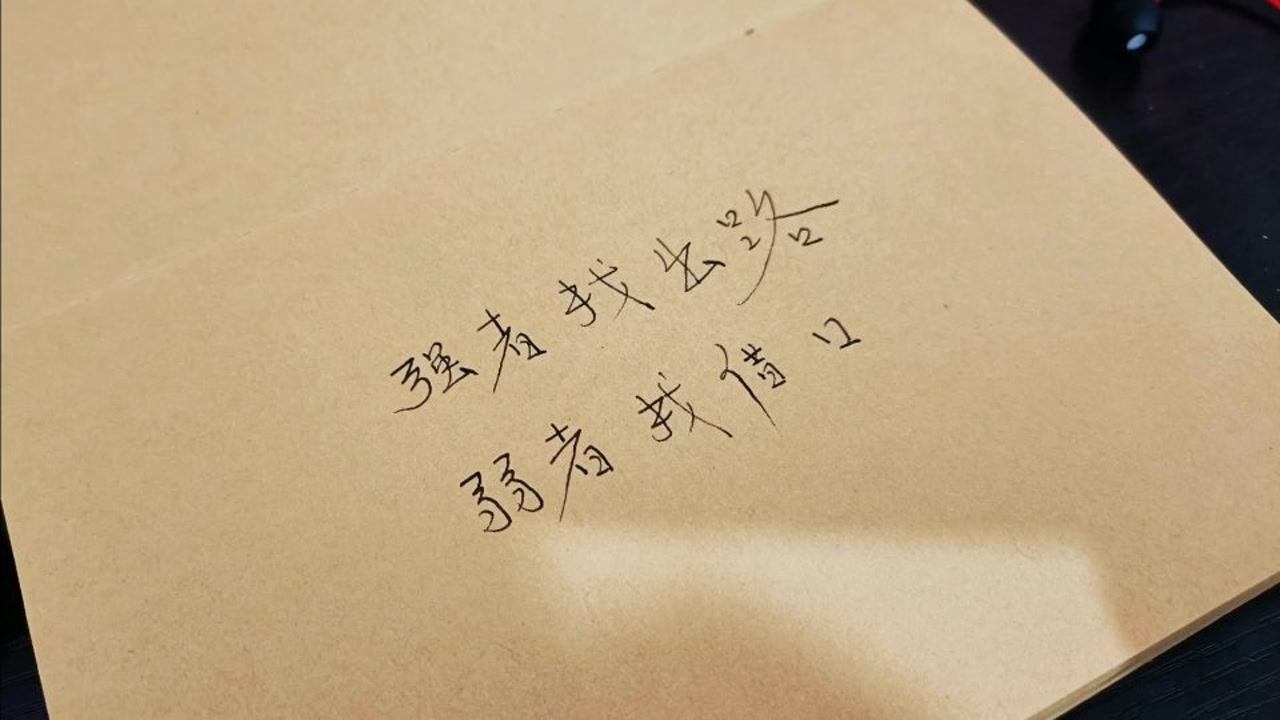 强者找出路
弱者找借口